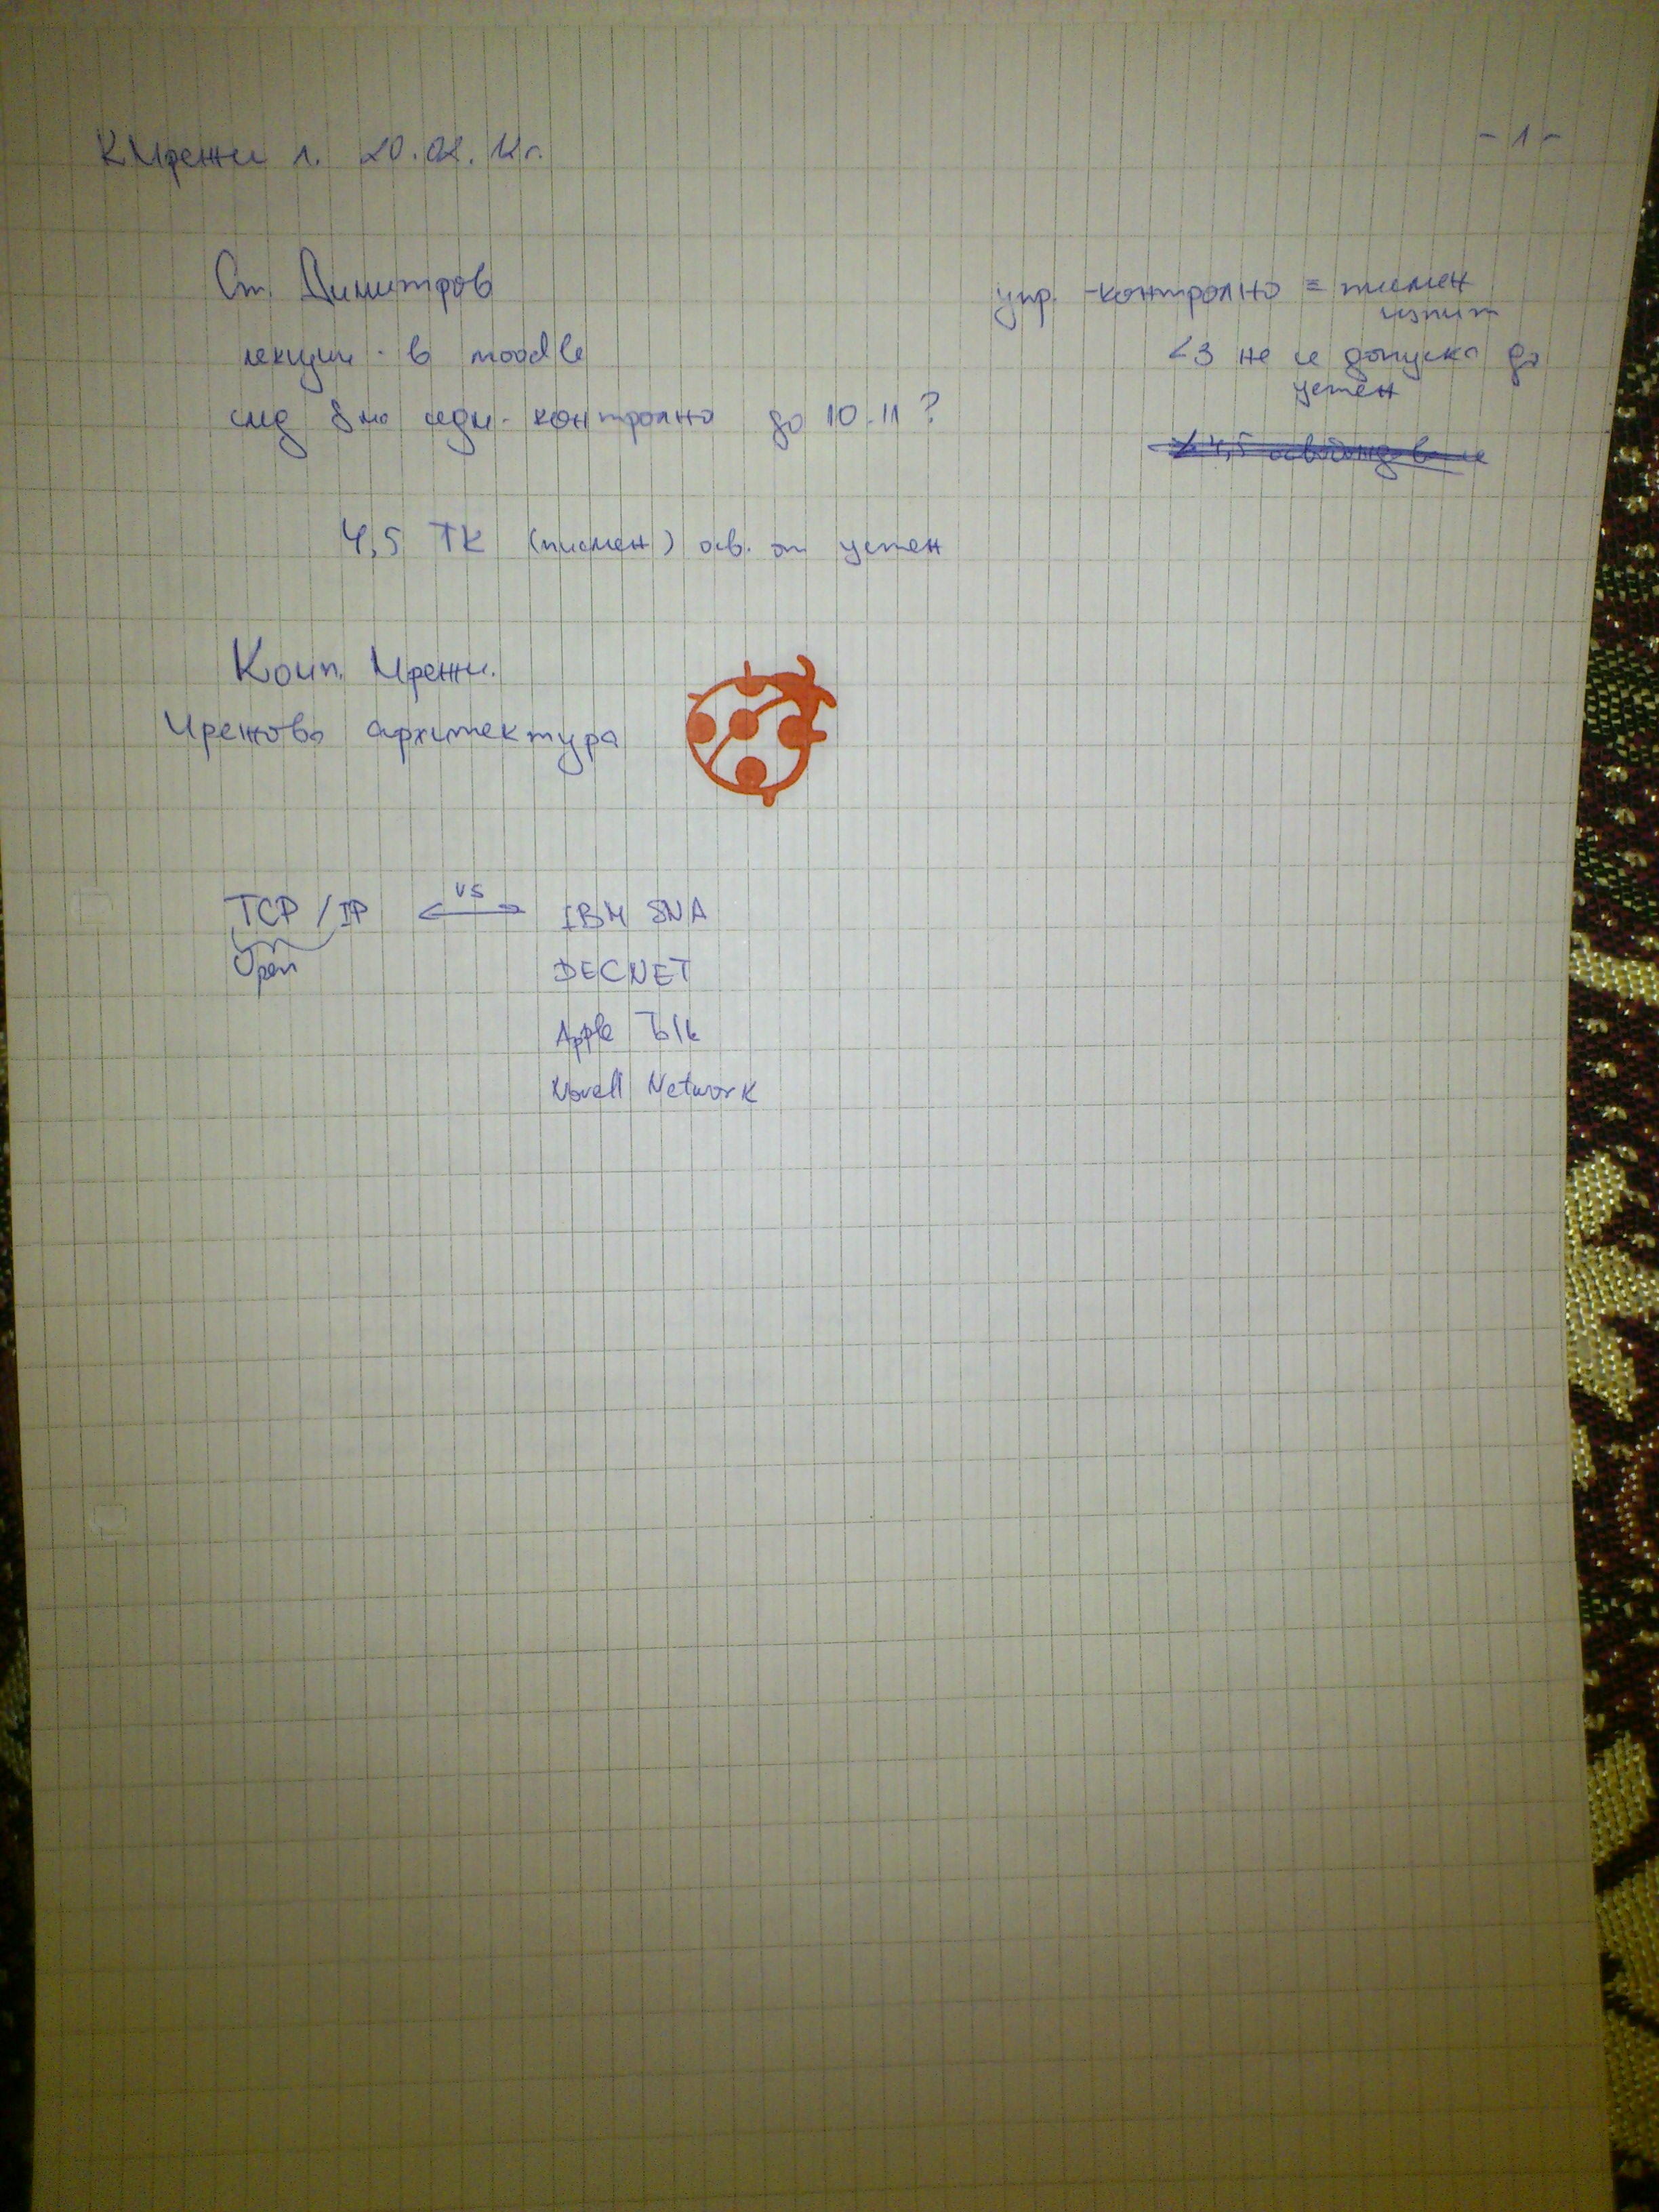 КМрежи 1. 20.02.12г.
- 1 -
Ст. Димитров
лекции - в moodle
след 8ма седм. контролно до 10-11?
упр. - контролно = писмен
изпит
<3 не се допуска до
устен
4,5 ТК (писмен) осв. от устен
Комп. Мрежи.
Мрежова архитектура
TCP / IP vs IBM SNA
Open DECNET
Apple Talk
Novell Network